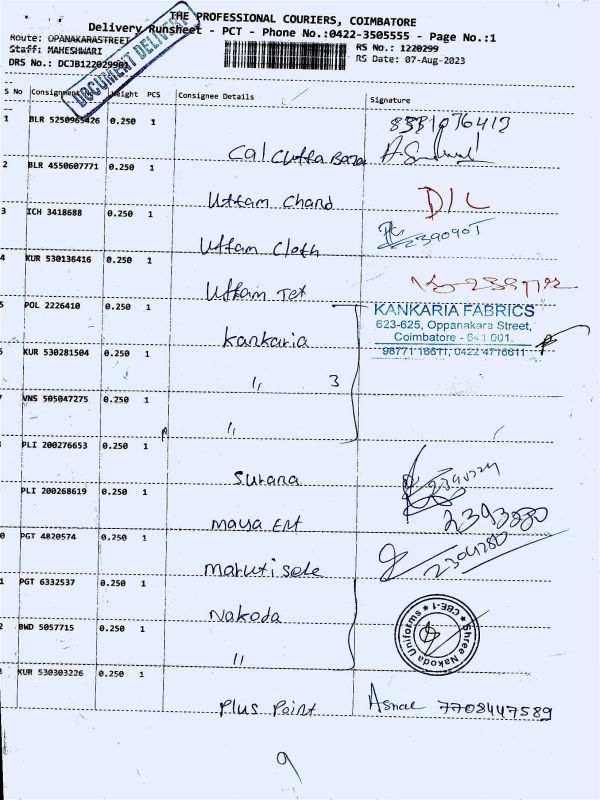 THE PROFESSIONAL COURIERS, COIMBATORE
Delivery Runsheet - PCT - Phone No.:0422-3505555 - Page No.:1
Route: OPANAKARASTREET
RS No.: 1220299
Staff: MAHESHWARI
RS Date: 07-Aug-2023
DRS No.: DCJB122029901
DOCUMENT DELIVERY
S No Consignment No Weight PCS Consignee Details Signature
1 BLR 5250965426 0.250 1 Calcutta Bazar
2 BLR 4550607771 0.250 1 Uttam Chand D/L
3 ICH 3418688 0.250 1 Uttam Cloth
4 KUR 530136416 0.250 1 Uttam Tet
5 POL 2226410 0.250 1 Kankaria
KANKARIA FABRICS
623-625, Oppanakara Street,
Coimbatore - 641 001.
98771 16611, 0422 4716611
KUR 530281504 0.250 1 ,, 3
VNS 505047275 0.250 1 ,,
PLI 200276653 0.250 1 Surana
PLI 200268619 0.250 1 Maya Ent 2393880
0 PGT 4820574 0.250 1 Maruti sale
1 PGT 6332537 0.250 1 Nakoda
2 BWD 5057715 0.250 1 ,,
Shree Nakoda Uniforms * CBE-1 *
KUR 530303226 0.250 1 Plus Point 7708447589
9